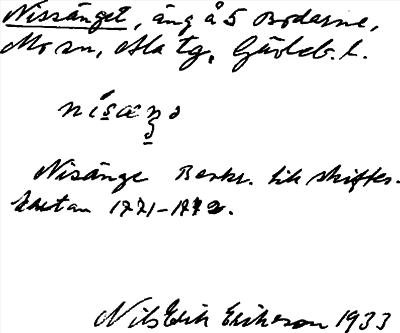 Nissänget, äng å S Bodarne,
Mo sn, Ala tg, Gävleb. l.
nísæŋə
Nisänge Beskr. till skiftes-
kartan 1771-1772.
Nils Erik Erikson 1933